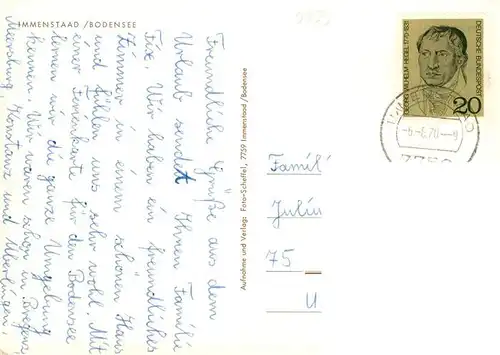 IMMENSTAAD / BODENSEE
Freundliche Grüße aus dem
Urlaub sendet Ihnen Familie
Fix. Wir haben ein freundliches
Zimmer in einem schönen Haus
und fühlen uns sehr wohl. Mit
einer Ferienkarte für den Bodensee
lernen wir die ganze Umgebung
kennen. Wir waren schon in Bregenz,
Meersburg, Konstanz und Überlingen.
Aufnahme und Verlag: Foto-Scheffel, 7759 Immenstaad/Bodensee
Famili
Juliu
75
U
GEORG WILHELM HEGEL 1770-1831
DEUTSCHE BUNDESPOST
20
-6.-6.70.--